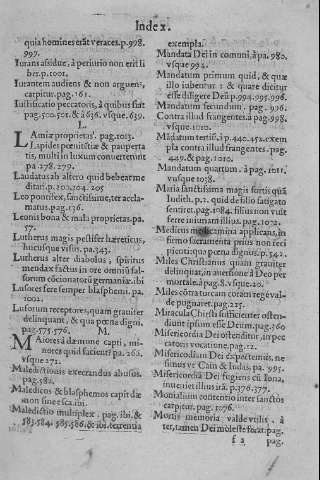 Index.
quia homines erāt veraces.p.998.
997.
Iurans assidue, à periurio non erit li
ber.p.1001.
Iurantem audiens & non arguens,
carpitur.pag.161.
Iustificatio peccatoris, à quibus fiat
pag.500.501. & 636. vsque.639.
L
LAmiæ proprietas. pag.1013.
Lapides pœnitētiæ & pauperta
tis, multi in luxum conuertēunt
pa.278.279.
Laudatus ab altero quid debeat me
ditari.p.203.204. 205
Leo pontifex, sanctissime, ter accla-
matus.pag.136.
Leonis bona & mala proprietas.pa.
57.
Lutherus magis pestifer hæreticus,
hucusque visus.pa.343.
Lutherus alter diabolus, spiritus
mendax factus in ore omniū fal-
sorum cōcionatorū germaniæ.ibi
Lusores fere semper blasphemi. pa.
1002.
Lusorum receptores, quam grauiter
delinquant, & qua pœna digni,
pag.575.576.
M.
MAiores à dæmone capti, mi-
nores quid facient? pa.262.
vsque 271.
Maledictionis execrandus abusus.
pag.582.
Maledicus & blasphemos capitdæ
mon sine esca.ibi.
Maledictio multiplex. pag. ibi. &
583.584. 585.586. & ibi. terrentia
exempla.
Mandata Dei in comuni. à pa. 980.
vsque 994.
Mandatum primum quid, & quæ
illo iubentur : & quare dicitur
esse diligere Deū p.994.995.996.
Mandatum secundum. pag. 996.
Contra illud frangentes.a pag.998.
vsque.1010.
Mādatum tertiū. i p.440.452.exem
pla contra illud frangentes. pag.
449. & pag.1010.
Mandatum quartum. à pag.1011.
vsque 1018.
Maria sanctissima magis fortis quā
Iudith. p.2. quid de filio fatigato
sentiret.pag.1084. filius non vult
ferre iniuriam illius. pag.1072.
Medicus medicamina applicans, in
firmo sacramenta prius non reci
pienti:qua pœna dignus.p.542.
Miles Christianus quam grauiter
delinquat, in auersione à Deo per
mortale.à pag.8.vsque 20.
Miles cōstra turcam coram rege val-
de pugnaret.pag.225.
Miracula Christi sufficienter osten-
diunt ipsum esse Deum.pag.360
Misericordia Dei ostenditur, in pec
catoris vocatione.pag.12.
Misericordiam Dei expectemus, ne
simus vt Cain & Iudas. pa. 995.
Misericordia Dei fugiens cū Iona,
inueniet illius irā.p.376.377.
Monialium contentio inter sanctos
carpitur. pag.1076.
Mortis memoria valde vtilis. à
ter, tamen Dei moleste fōrat.pag.
f 2 pag.